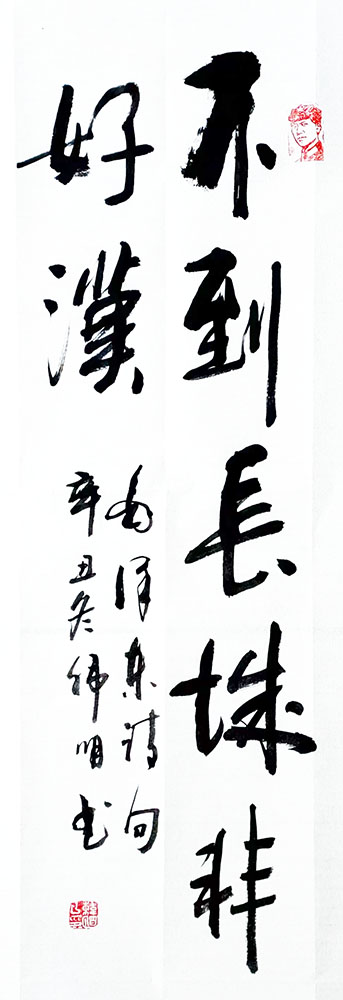 不到長城非
好漢
毛澤東詩句
辛丑冬
明书